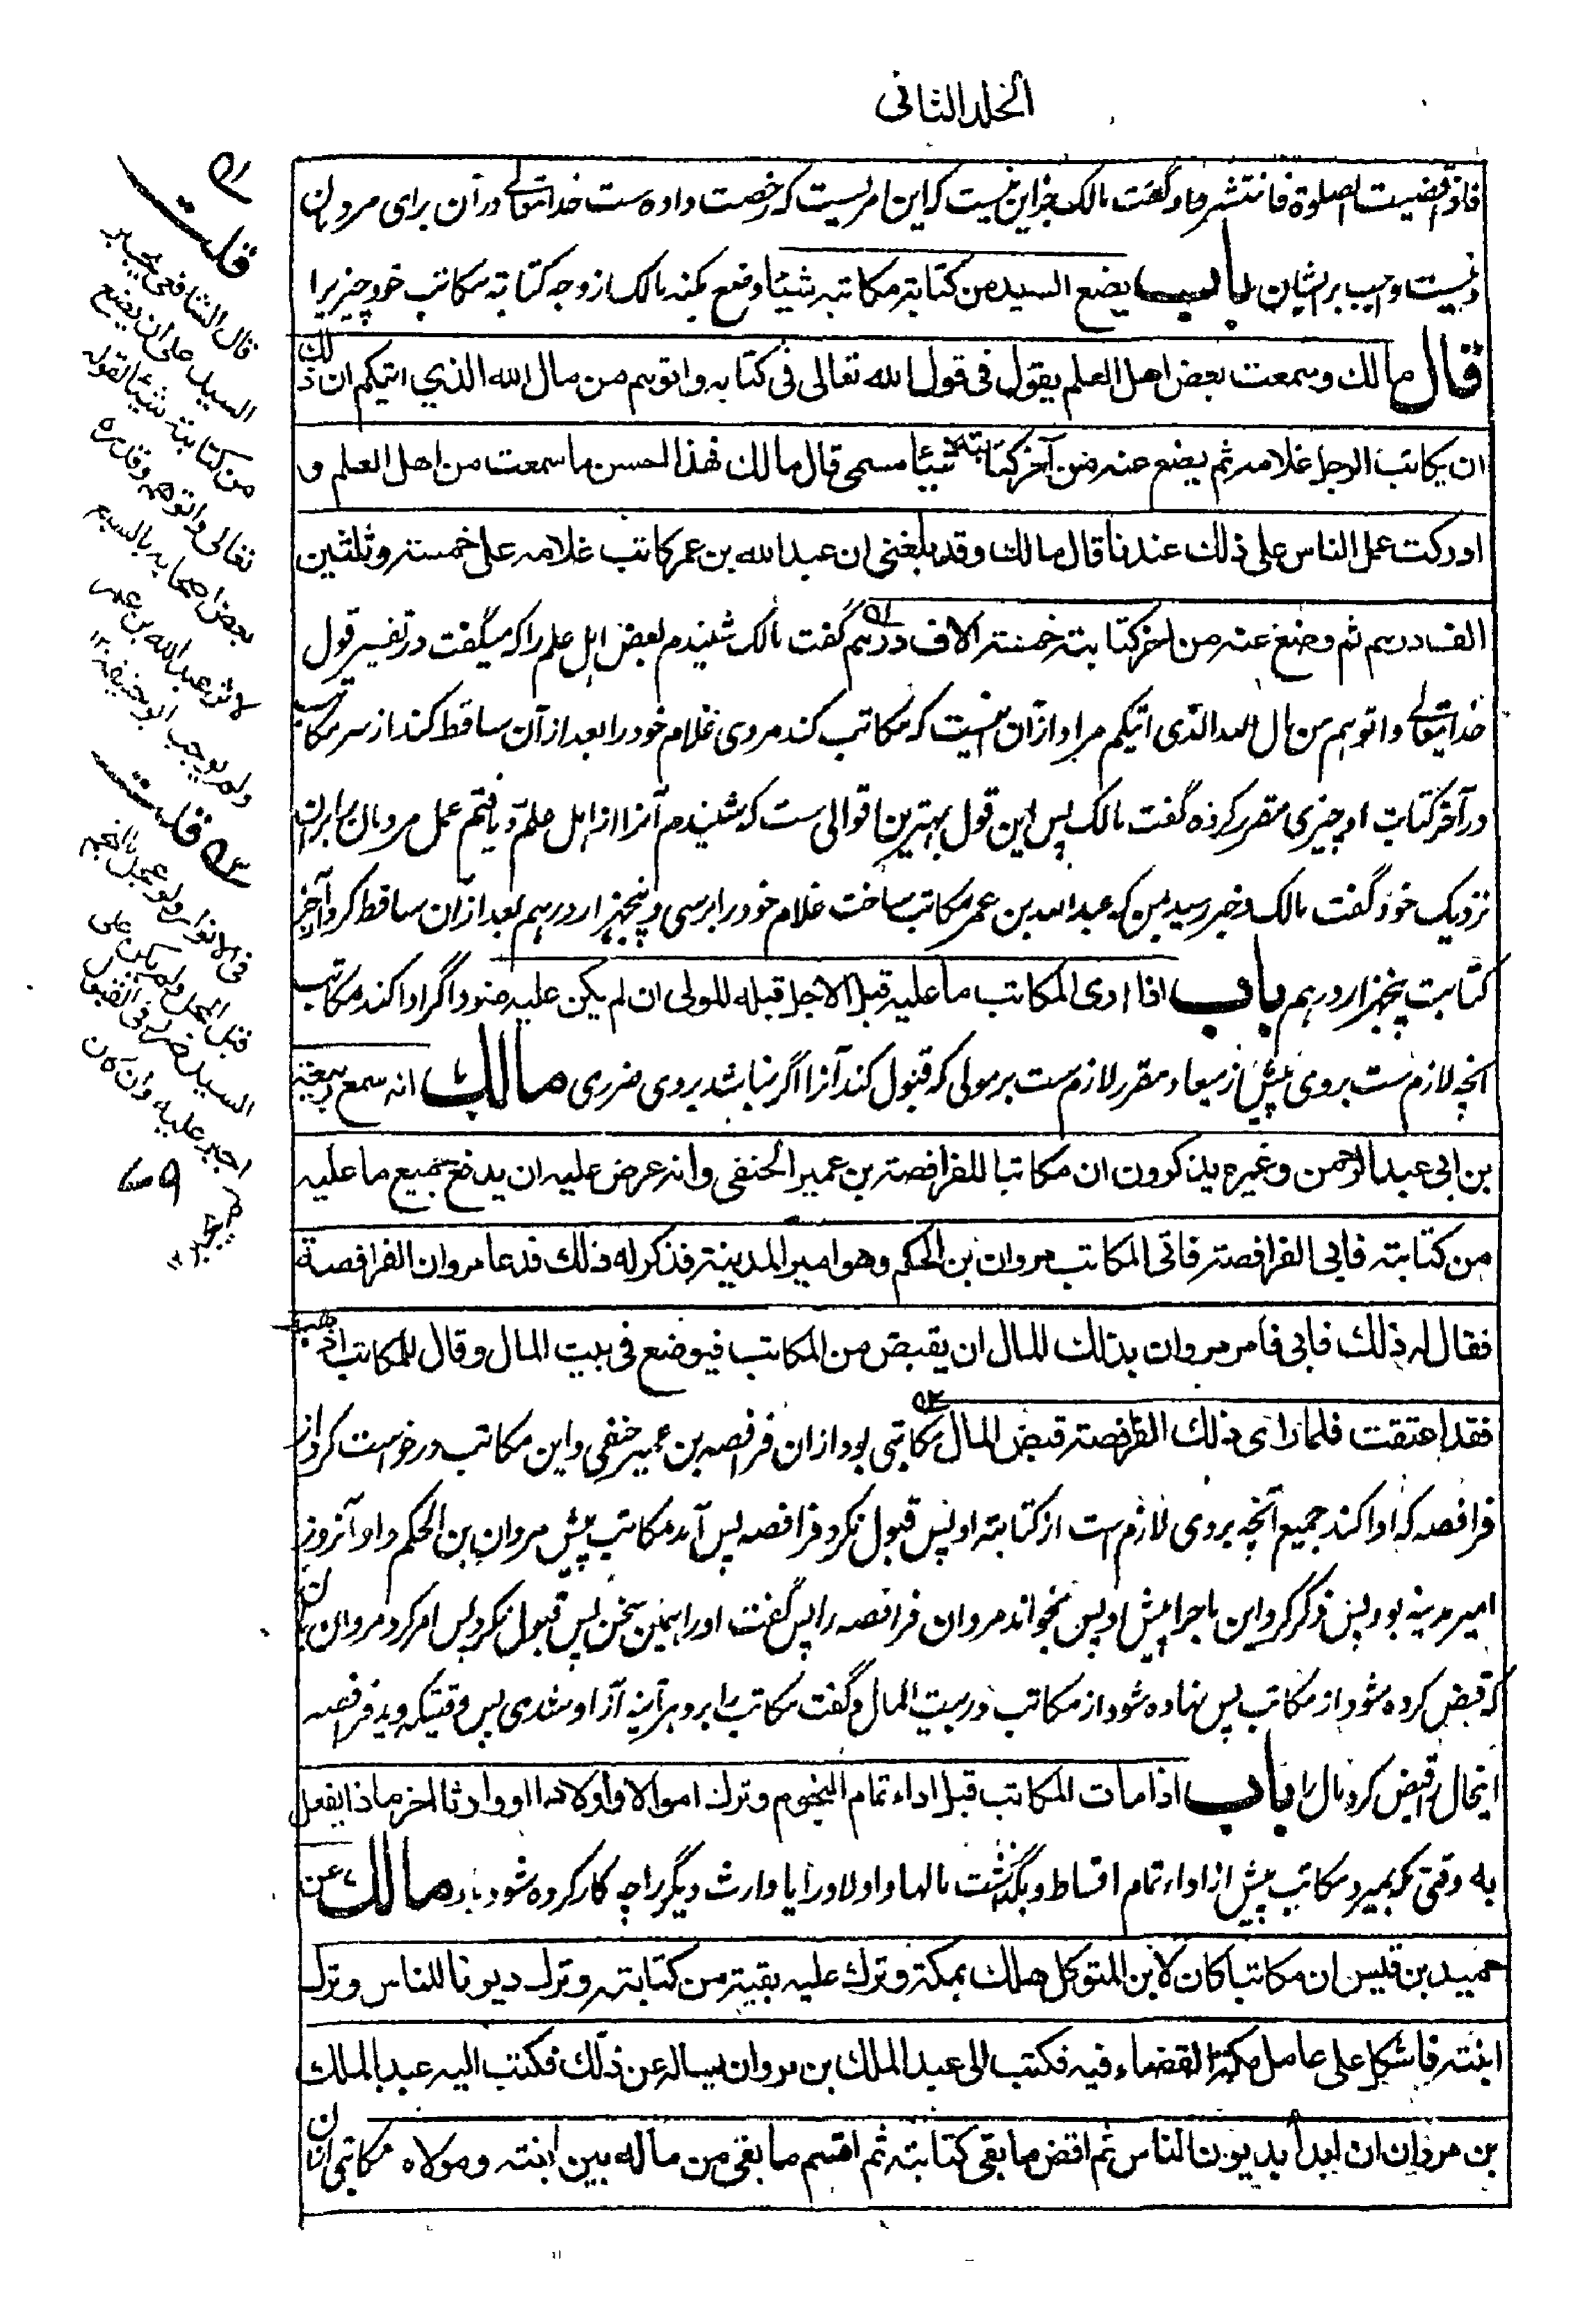 الجلد الثانی
فاذا قضیت الصلوة فانتشروا وگفت مالک جز این نیست که این امریست که رخصت داده ست خدایتعالے درآن برای مردمان
ونیست واجب برایشان باب یضع السید من کتابة مکاتبه شیئا وضع کند مالک از وجه کتابة مکاتب خود چیزیرا
قال مالك وسمعت بعض اهل العلم یقول فی قول الله تعالی فی کتابه واتوهم من مال الله الذي اتیکم ان ذلك
ان یکاتب الرجل غلامه ثم یضع عنه من آخر کتابته شیئا مسمی قال مالك فهذا احسن ما سمعت من اهل العلم و
ادرکت عمل الناس علی ذلك عندنا قال مالك وقد بلغنی ان عبد الله بن عمر کاتب غلامه علی خمسة وثلثین
الف درهم ثم وضع عنه من اخر کتابته خمسة الاف درهم ۵۱ گفت مالک شنیدم بعض اهل علم را که میگفت در تفسیر قول
خدایتعالے واتوهم من مال الله الذی اتیکم مراد ازآن اینست که مکاتب کند مردی غلام خود را بعد ازآن ساقط کند از سر مکاتب
در آخر کتابت او چیزی مقرر کرده گفت مالک پس این قول بهترین اقوالی ست که شنیدم آنرا از اهل علم و یافتم عمل مردمان برابر آن
نزدیک خود گفت مالک وخبر رسید بمن که عبد الله بن عمر مکاتب ساخت غلام خود را بر سی وپنجهزار درهم بعد ازآن ساقط کرد آخر
کتابت پنجهزار درهم باب اذا ادی المکاتب ما علیه قبل الاجل قبله للمولی ان لم یکن علیه ضرر اگر ادا کند مکاتب
انچه لازم ست بروی پیش از میعاد مقرر لازم ست بر مولی که قبول کند آنرا اگر نباشد بروی ضرری مالك انه سمع ربیعة
بن ابی عبد الرحمن وغیره یذکرون ان مکاتبا للفرافصة بن عمیر الحنفی وانه عرض علیه ان یدفع جمیع ما علیه
من کتابته فابی الفرافصة فاتی المکاتب مروان بن الحکم وهو امیر المدینة فذکر له ذلك فدعا مروان الفرافصة
فقال له ذلك فابی فامر مروان بذلك المال ان یقبض من المکاتب فیوضع فی بیت المال وقال للمکاتب اذهب
فقد اعتقت فلما رای ذلك الفرافصة قبض المال ۵۲ مکاتبی بود از ان فرافصه بن عمیر حنفی واین مکاتب درخواست کرد از
فرافصه که ادا کند جمیع آنچه بروی لازم ست از کتابته او پس قبول نکرد فرافصه پس آمد مکاتب پیش مروان بن الحکم واو آنروز
امیر مدینه بود پس ذکر کرد این ماجرا پیش او پس بخواند مروان فرافصه را پس گفت اورا همین سخن پس قبول نکرد پس امر کرد مروان بآن
که قبض کرده شود از مکاتب پس نهاده شود از مکاتب در بیت المال وگفت مکاتب را برو هر آئینه آزاد شدی پس وقتیکه دید فرافصه
اینحال را قبض کرد مال را باب اذا مات المکاتب قبل اداء تمام النجوم وترك اموالا واولادا او وارثا اخر ماذا یفعل
به وقتی که بمیرد مکاتب پیش از اداء تمام اقساط وبگذاشت مالها واولاد را یا وارث دیگر را چه کار کرده شود باو مالك عن
حمید بن قیس ان مکاتبا کان لابن المتوکل هلك بمکة وترك علیه بقیة من کتابته وترك دیونا للناس وترك
ابنته فاشکل علی عامل مکة القضاء فیه فکتب الی عبد الملك بن مروان یساله عن ذلك فکتب الیه عبد الملك
بن مروان ان ابدأ بدیون الناس ثم اقض ما بقی کتابته ثم اقسم ما بقی من ماله بین ابنته ومولاه مکاتبی ازان
۵۱
قلت
قال الشافعی یجبر
السید علی ان یضع
من کتابته شیئا لقوله
تعالی واتوهم وقدره
بعض اصحابه بالسبع
لاثر عبدالله بن عمر
ولم یوجب ابو حنیفة ۱۲
۵۲ قلت
فی الانوار ولو عجل النجم
قبل المحل ولم یکن علی
السید ضرر فی القبول
اجبر علیه وان کان
لم یجبر ۱۲